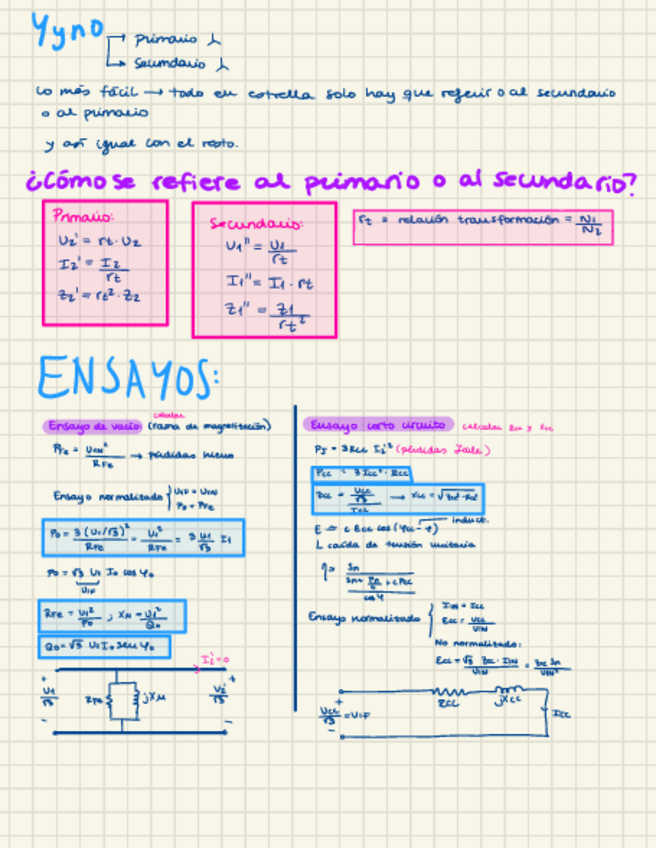 Yyn0
Primario ⅄
Secundario ⅄
Lo más fácil → todo en estrella solo hay que referir o al secundario
o al primario
y así igual con el resto.
¿Cómo se refiere al primario o al secundario?
Primario:
U2' = rt · U2
I2' = I2 / rt
Z2' = rt² · Z2
Secundario:
U1'' = U1 / rt
I1'' = I1 · rt
Z1'' = Z1 / rt²
rt = relación transformación = N1 / N2
ENSAYOS:
calcular
Ensayo de vacío (rama de magnetización)
PFe = U1N² / RFe → pérdidas hierro
Ensayo normalizado
P0 = PFe
P0 = 3 (U1/√3)² / RFe = U1² / RFe = 3 U1/√3 I1
P0 = √3 U1 I0 cos φ0
U1F
RFe = U1² / P0 ; XM = U1² / Q0
Q0 = √3 U1 I0 sen φ0
I2' = 0
+ U1/√3 -
RFe
jXM
+ U2'/√3 -
Ensayo corto circuito calcular Rcc y Xcc
PJ = 3 Rcc I2'² (pérdidas Joule)
Pcc = 3 Icc² · Rcc
Zcc = Ucc/√3 / Icc → Xcc = √Zcc² - Rcc²
induct.
caída de tensión unitaria
Ensayo normalizado
I1N = Icc
Ecc = Ucc / U1N
No normalizado:
Ecc = √3 Zcc · I1N / U1N = Zcc Sn / U1N²
+ Ucc/√3 = U1F -
Rcc
jXcc
Icc